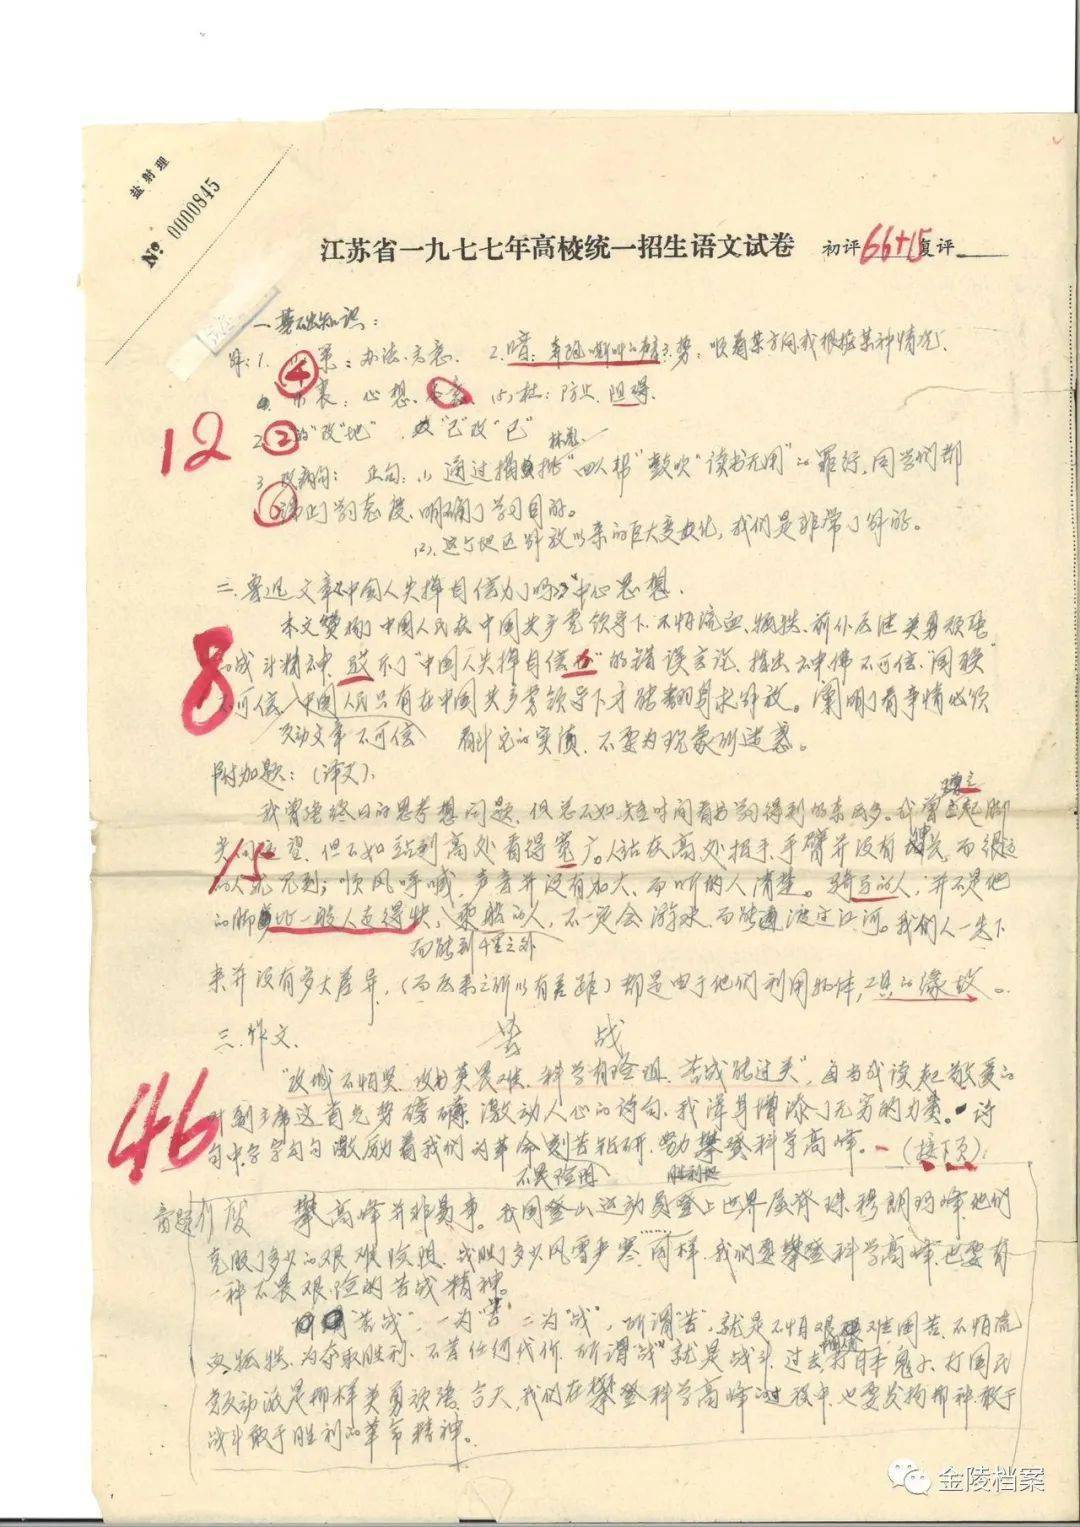 盐射理
No. 0000845
江苏省一九七七年高校统一招生语文试卷 初评 66+15 复评
一 基础知识：
1. 策：办法.主意. 2. 暗： 势：顺着某方向或根据某种情况
④ 衷：心想. (5) 杜：防止.阻碍.
12
2. ② 的"改"地" "己"改"已"
林彪
3. 改病句： 正句：(1) 通过揭批"四人帮"鼓吹"读书无用"的罪行，同学们都
⑥ 端正了学习态度，明确了学习目的。
(2) 这个地区解放以来的巨大变化，我们是非常了解的。
二.鲁迅文章《中国人失掉自信力了吗》中心思想.
本文赞扬了中国人民在中国共产党领导下.不怕流血、牺牲、前仆后继英勇顽强
8
的战斗精神，驳斥了"中国人失掉自信力"的错误言论，指出神佛不可信."国联"
不可信，中国人民只有在中国共产党领导下才能翻身求解放。阐明了看事情必须
反动文章不可信 看到它的实质，不要为现象所迷惑。
附加题：（译文）、
我曾经终日的思考想问题，但总不如短时间看书学习得到的东西多。我曾立起脚
尖向远望，但不如站到高处看得宽广。人站在高处招手，手臂并没有 长，而很远
15
的人就见到；顺风呼喊，声音并没有加大、而听的人清楚。骑马的人，并不是他
的脚 比一般人走得快，乘船的人，不一定会游水，而能通渡过江河。我们人一生下
而能到千里之外
来并没有多大差异，（而后来之所以有差距）都是由于他们利用物体，工具的缘故。
三.作文. 苦战
46
"攻城不怕坚，攻书莫畏难，科学有险阻，苦战能过关"，每当我读起敬爱的
叶副主席这首气势磅礴、激动人心的诗句，我浑身增添了无穷的力量。诗
句中字字句句激励着我们为革命刻苦钻研，努力攀登科学高峰。（接下页）
不畏险阻 胜利地
攀高峰并非易事。我国登山运动员登上世界屋脊珠穆朗玛峰他们
克服了多少的艰难险阻，战胜了多少风雪严寒，同样，我们要攀登科学高峰，也要有
一种不畏艰险的苦战精神。
"苦战"，一为"苦"二为"战"，所谓"苦"，就是不怕艰难困苦、不怕流
血牺牲，为夺取胜利，不惜任何代价，所谓"战"就是战斗，过去打日本鬼子、打国民
党反动派是那样英勇顽强，今天，我们在攀登科学高峰的过程中，也要发扬那种敢于
战斗敢于胜利的革命精神。
金陵档案